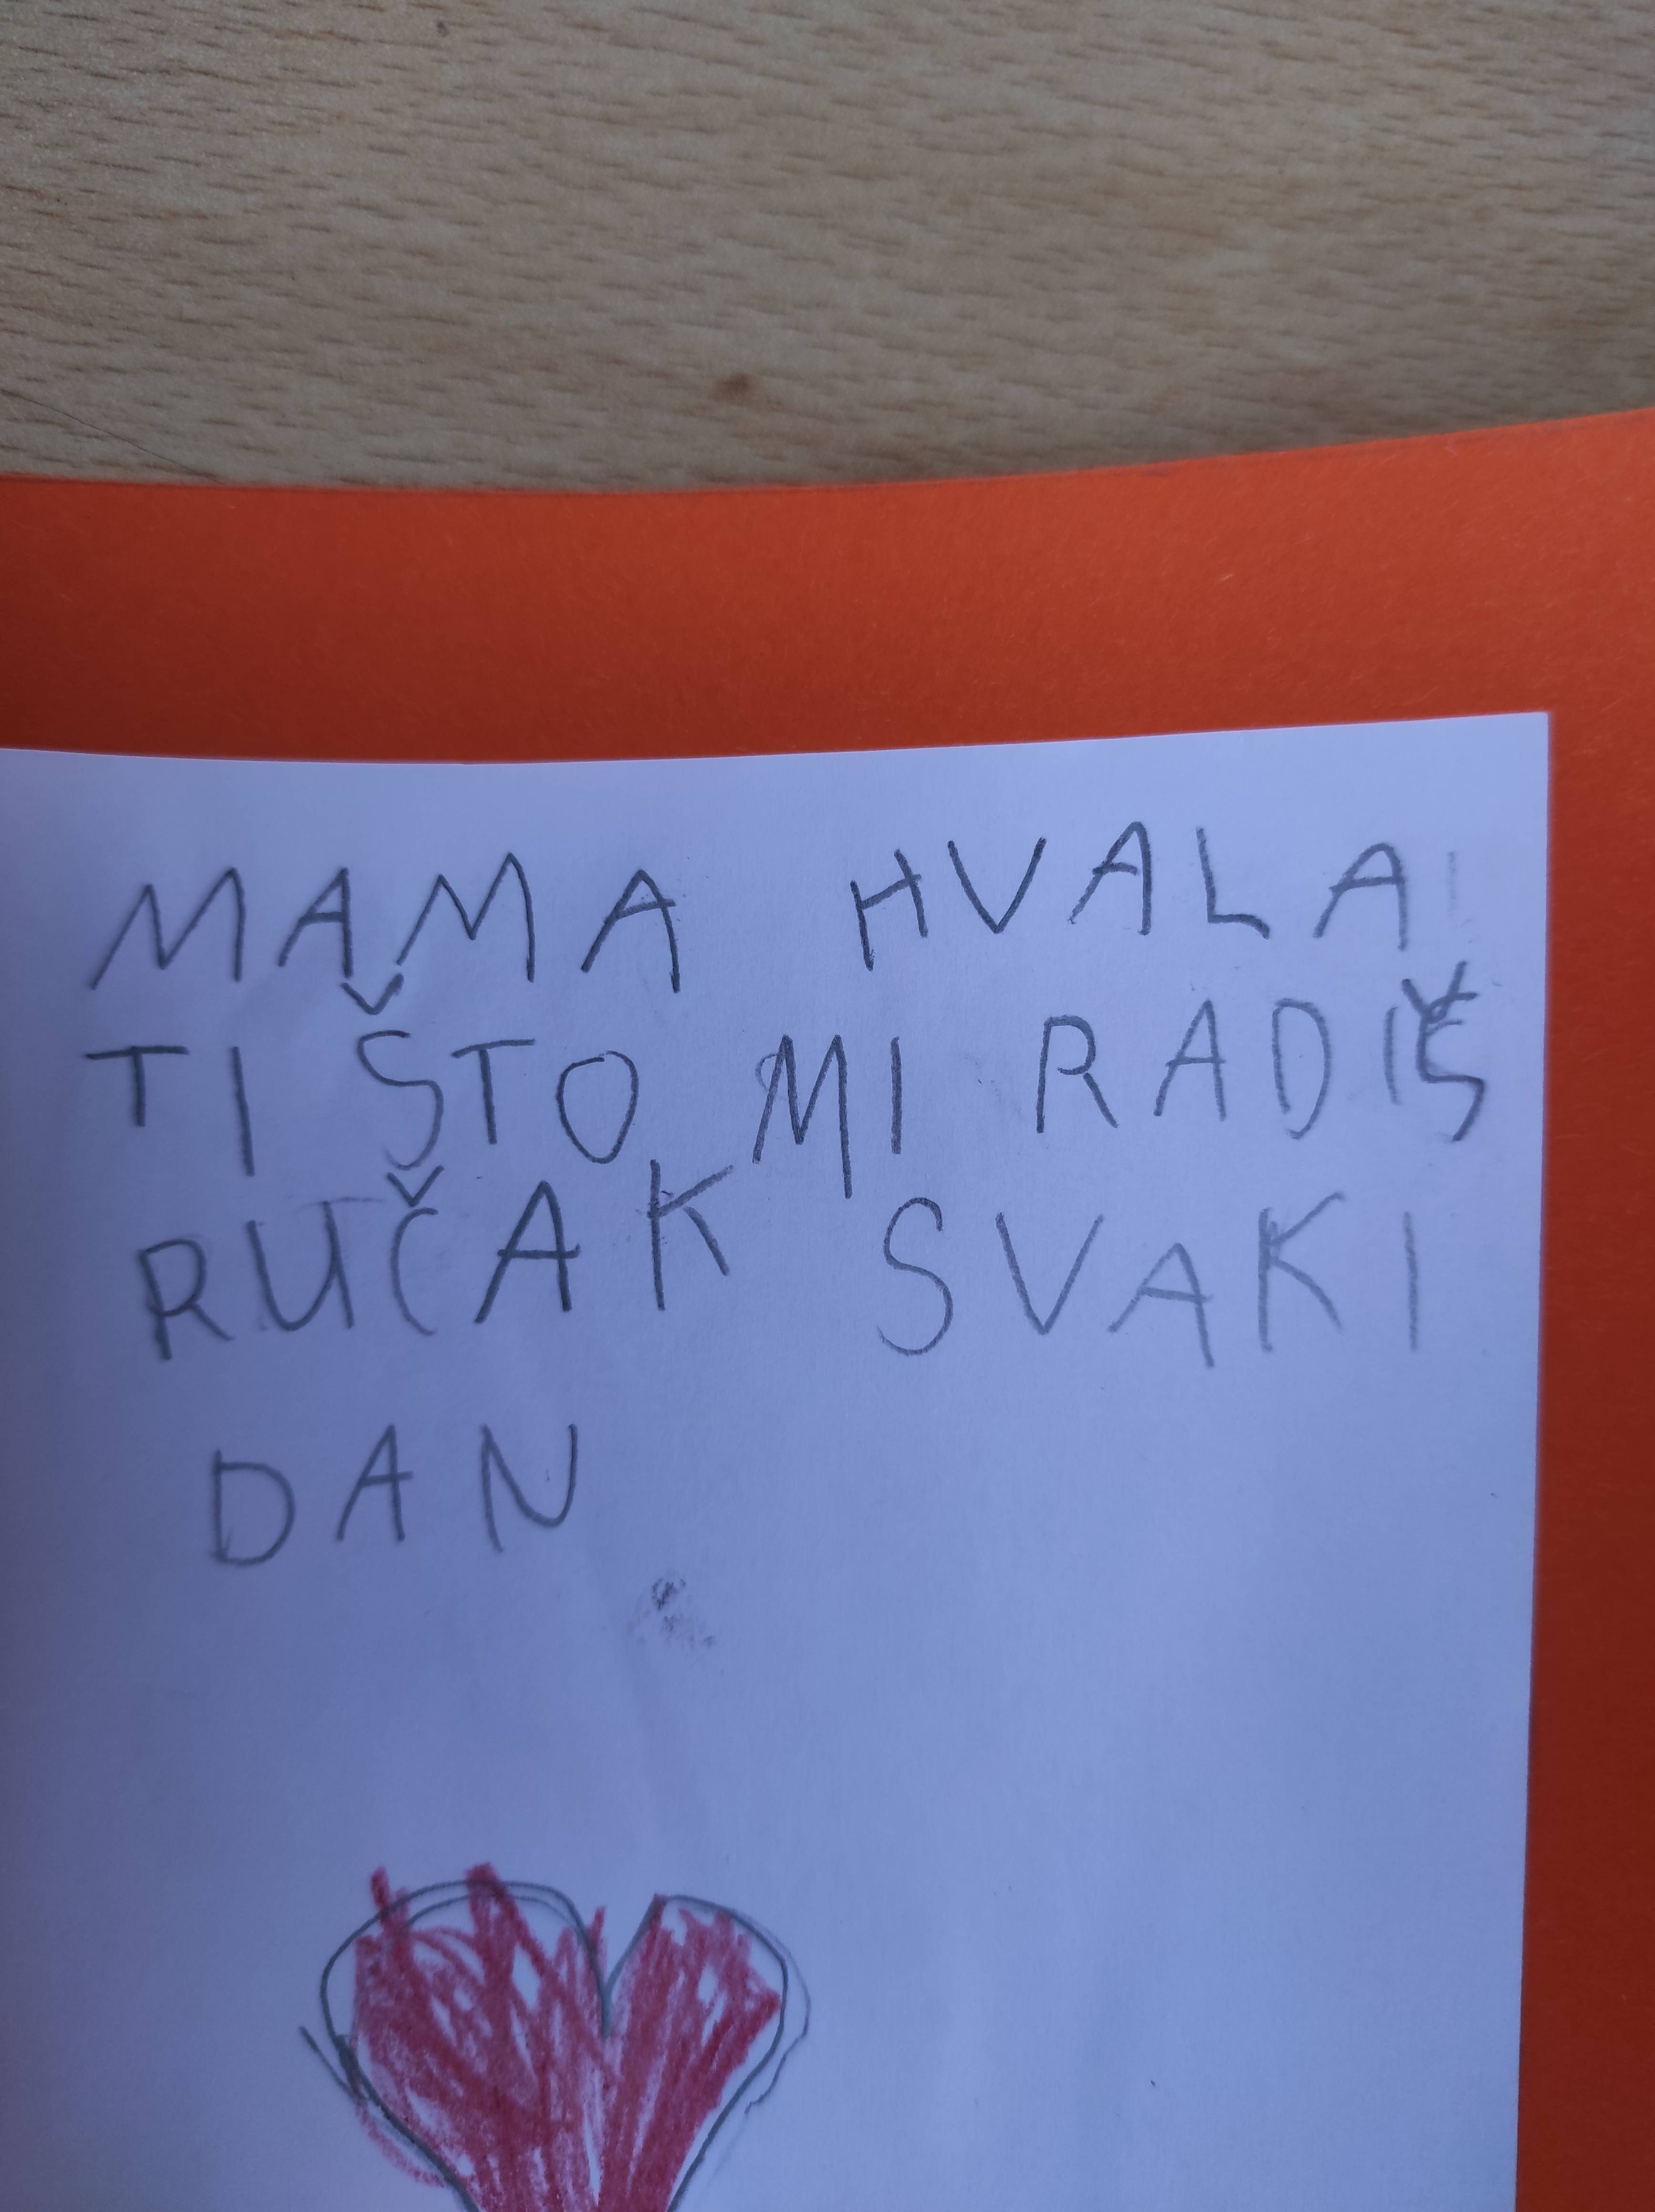 MAMA HVALA
TI ŠTO MI RADIŠ
RUČAK SVAKI
DAN